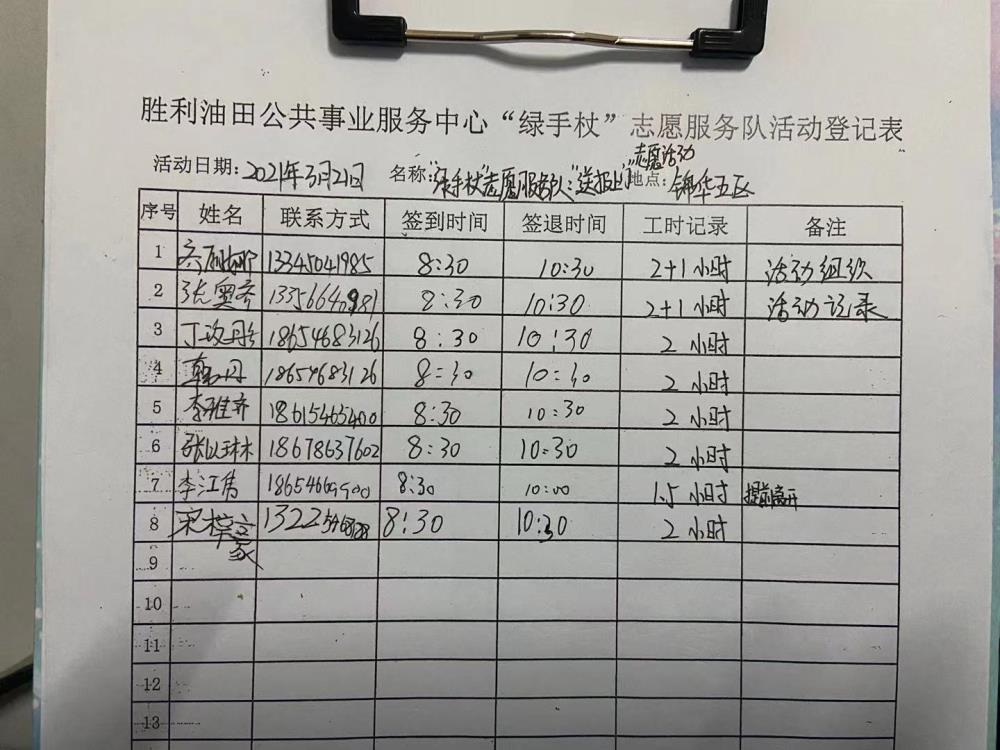 胜利油田公共事业服务中心“绿手杖”志愿服务队活动登记表
志愿活动
活动日期：2021年3月21日 名称：“绿手杖”志愿服务队：“送报上门” 地点：锦华五区
序号 姓名 联系方式 签到时间 签退时间 工时记录 备注
1 13345041985 8:30 10:30 2+1小时 活动组织
2 张奥齐 8:30 10:30 2+1小时 活动记录
3 丁政丹 18654683126 8:30 10:30 2小时
4 韩丹 18654683126 8:30 10:30 2小时
5 李雅齐 18615465400 8:30 10:30 2小时
6 张以琳 18678637602 8:30 10:30 2小时
7 李江隽 8:30 10:00 1.5小时 提前离开
8 宋梓豪 8:30 10:30 2小时
9
10
11
12
13